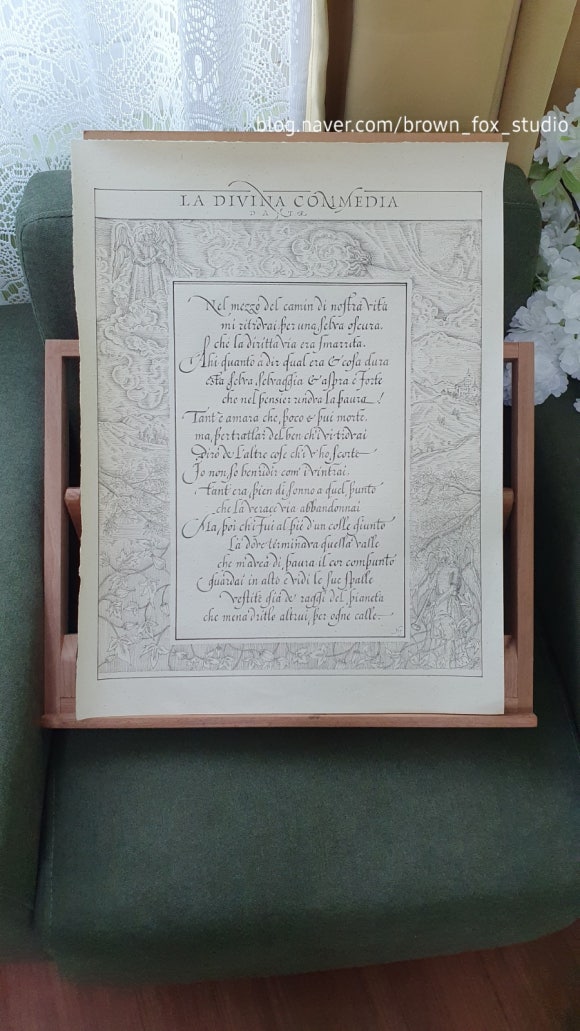 blog.naver.com/brown_fox_studio
LA DIVINA COMMEDIA
DANTE
Nel mezzo del camin di noſtra vita
mi ritrovai per una ſelva oſcura,
che la diritta via era ſmarrita.
Ahi quanto a dir qual era & coſa dura
eſta ſelva ſelvaggia & aſpra e forte
che nel penſier renova la paura!
Tant'e amara che poco e pui morte.
ma, per trattar del ben ch'i vi trovai
diro de l'altre coſe ch'i v'ho ſcorte
Io non ſo ben ridir com'i vintrai.
Tant'era pien di ſonno a quel punto
che la verace via abbandonnai
Ma, poi ch'i fui al pie d'un colle giunto
La dove terminava quella valle
che m'avea di paura il cor compunto
guardai in alto e vidi le ſue ſpalle
veſtite gia de' raggi del pianeta
che mena dritto altrui per ogne calle.